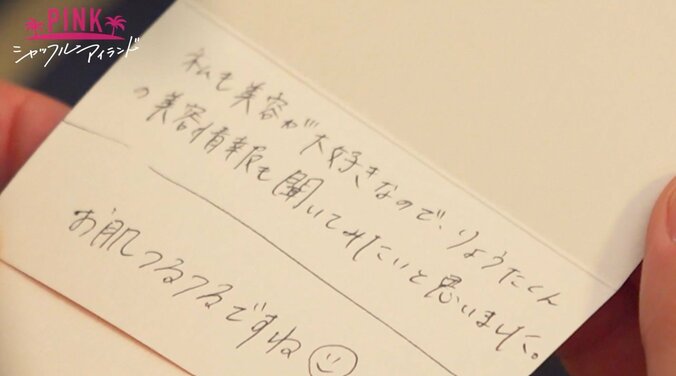 PINK
シャッフルアイランド
私も美容が大好きなので、りょうたくん
の美容情報も聞いてみたいと思いました。
お肌つるつるですね